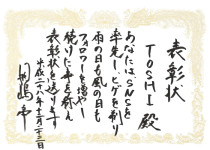 表彰状
TOSHI 殿
あなたはSNSを
率先し、ヒゲを剃り
雨の日も風の日も
フォロワーを増やし
続けた事を称え
表彰状を送ります
平成二十八年三月二十三日